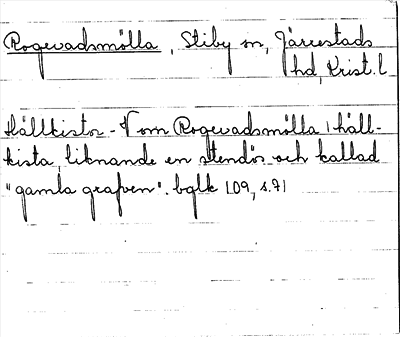 Rogevadsmölla, Stiby sn, Järrestads
hd, Krist. l.
Hällkistor - V om Rogevadsmölla 1 häll-
kista, liknande en stendös och kallad
"gamla grafven". bglk 109, s.71